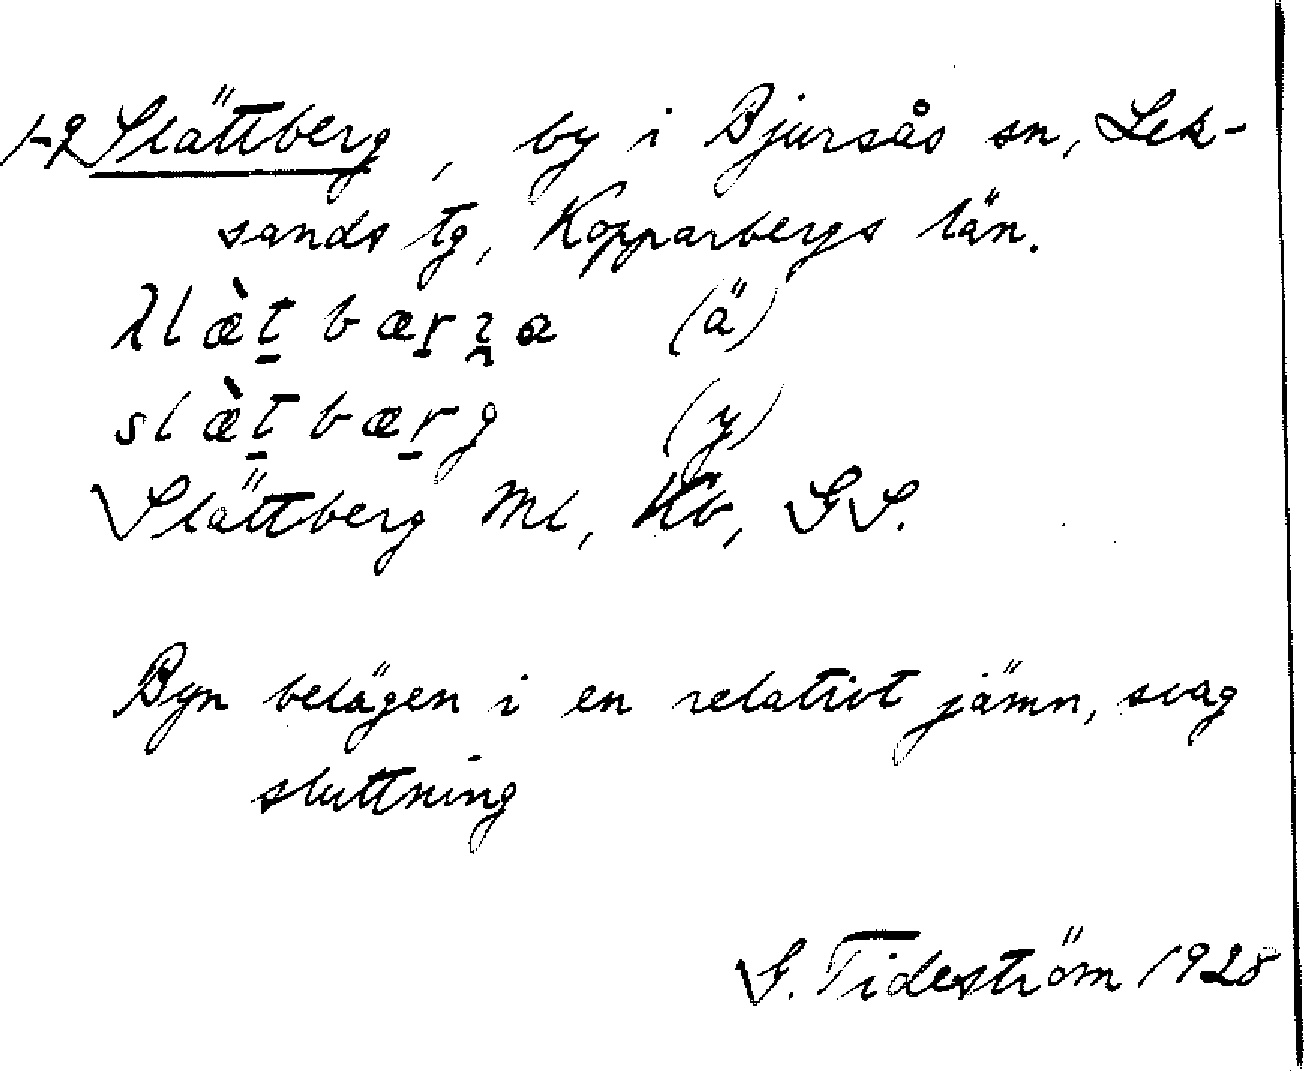 1-2 Slättberg, by i Bjursås sn, Lek-
sands tg, Kopparbergs län.
(ä)
slæ̀t̠bær̠g (y)
Slättberg Ml, Kb, GS.
Byn belägen i en relativt jämn, svag
sluttning
G. Tideström 1928